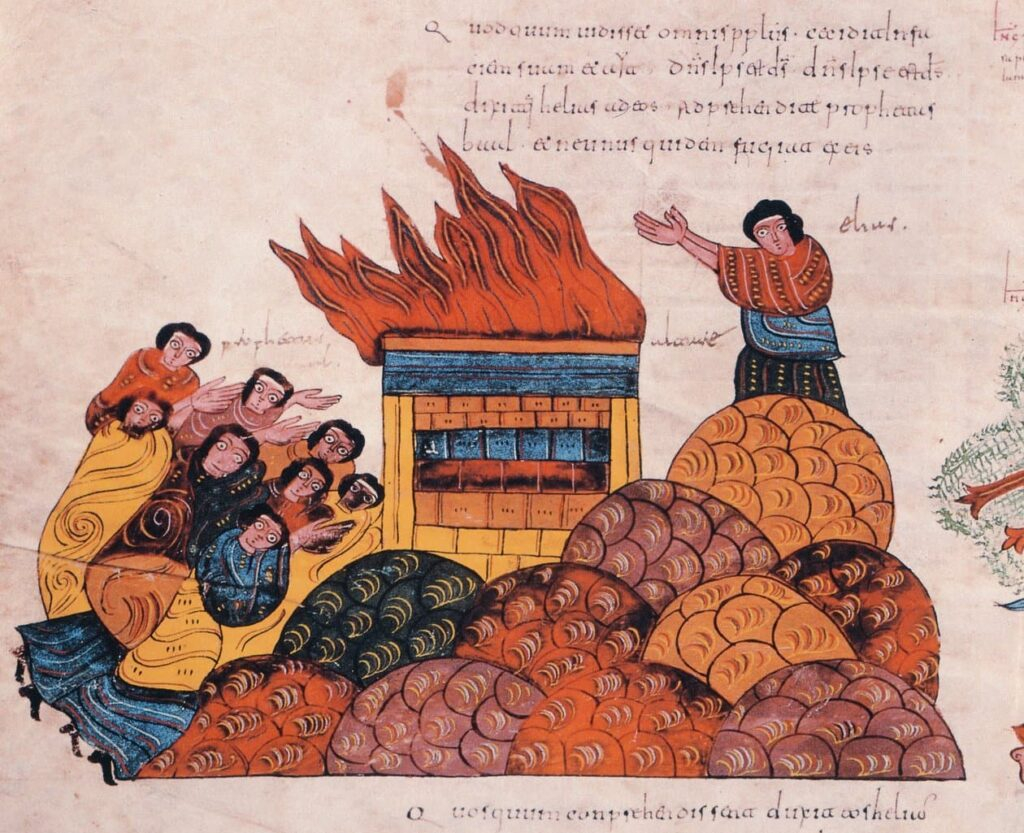 Quod quum uidisset omnis pplus · cecidit in fa
ciem suam et ayt dns ipse est ds · dns ipse est ds
dixitq helias ad eos · Adprehendite prophetas
baal · et ne unus quidem fugiat ex eis
elias.
altare
Quos quum conprehendissent duxit eos helias